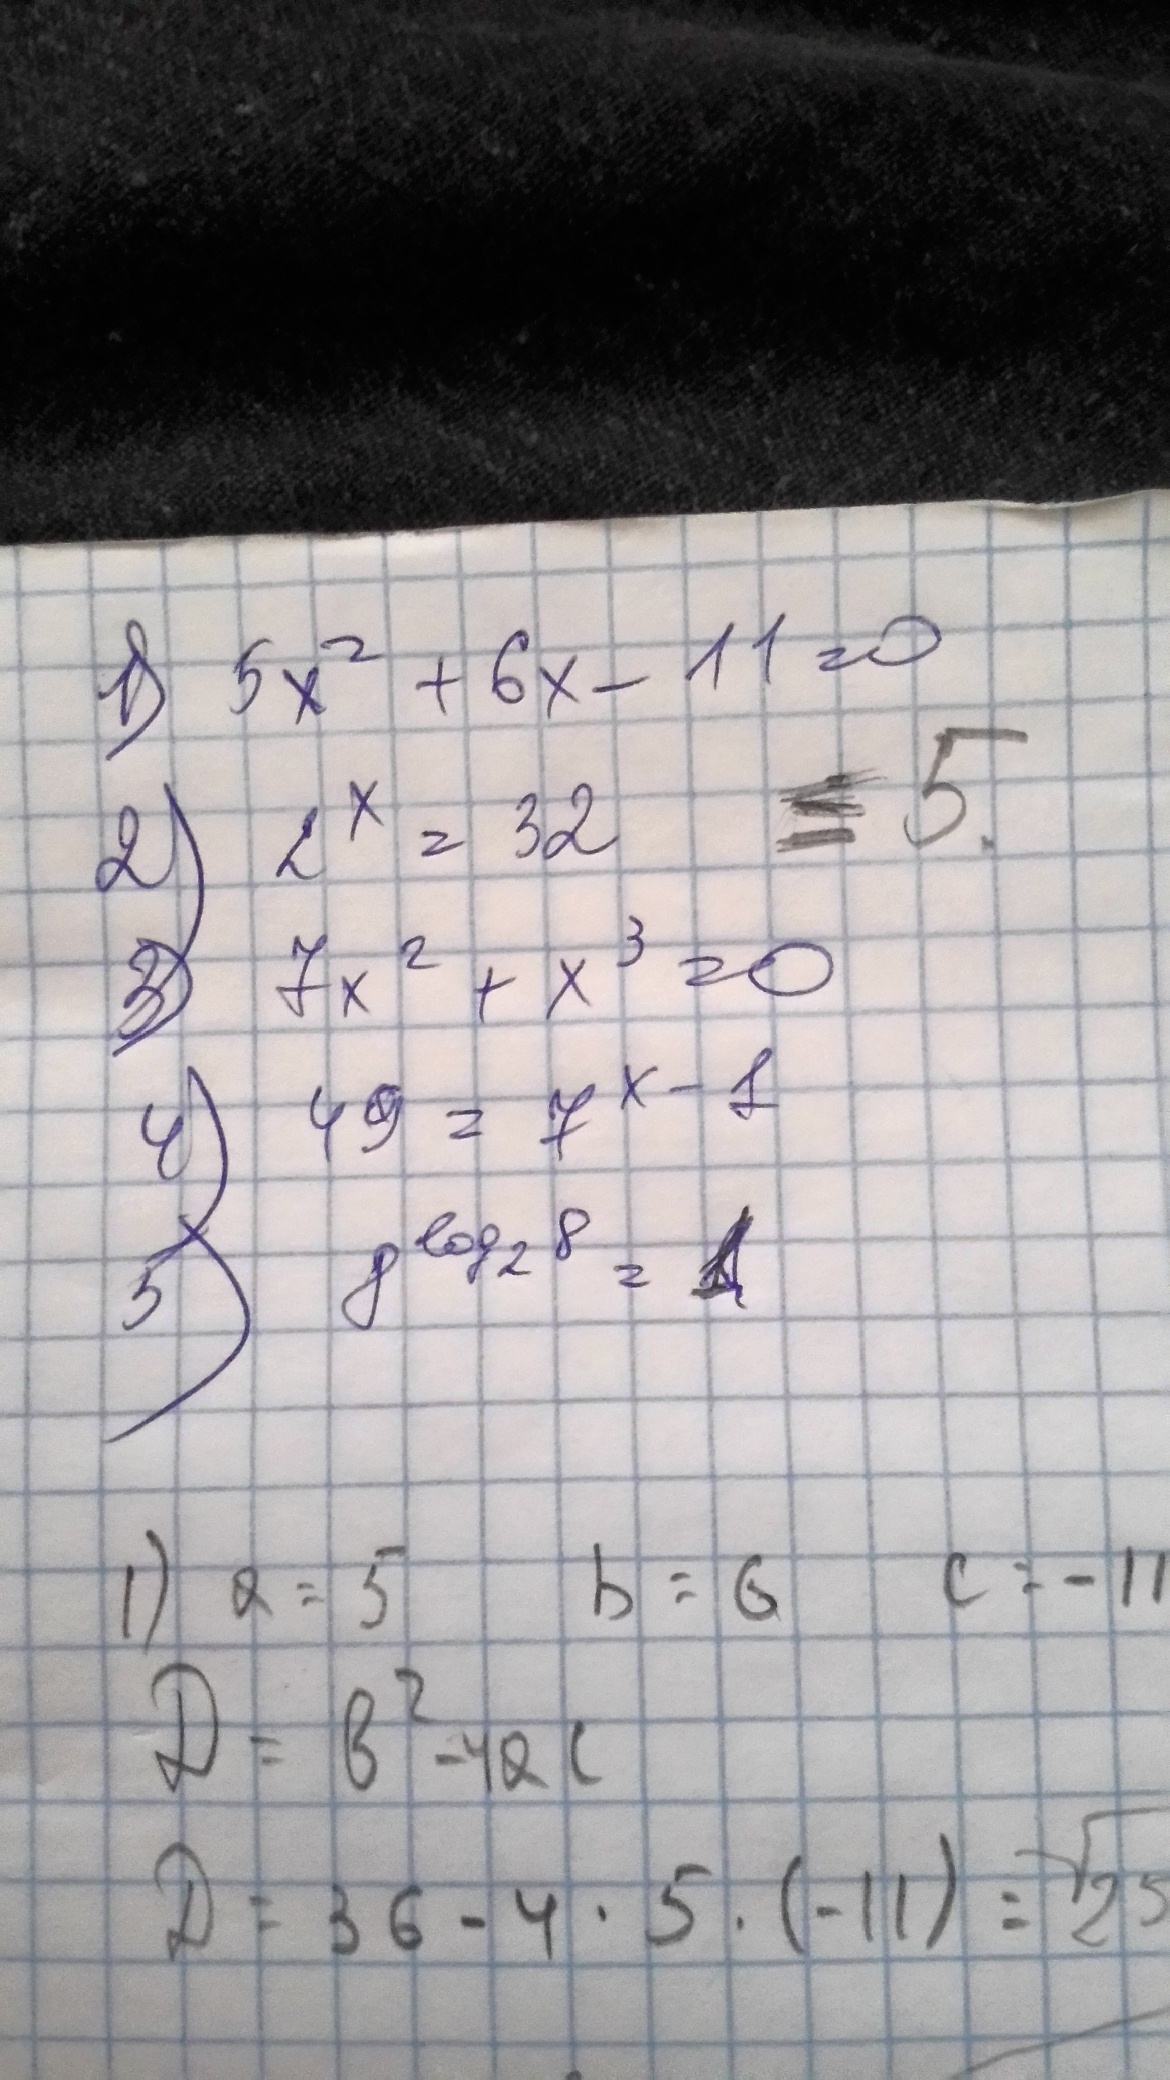 1) 5x² + 6x - 11 = 0
2) 2ˣ = 32 = 5.
3) 7x² + x³ = 0
4) 49 = 7ˣ⁻¹
5) 8^log₂8 =
1) a = 5 b = 6 c = -11
D = b² - 4ac
D = 36 - 4 · 5 · (-11) = √25